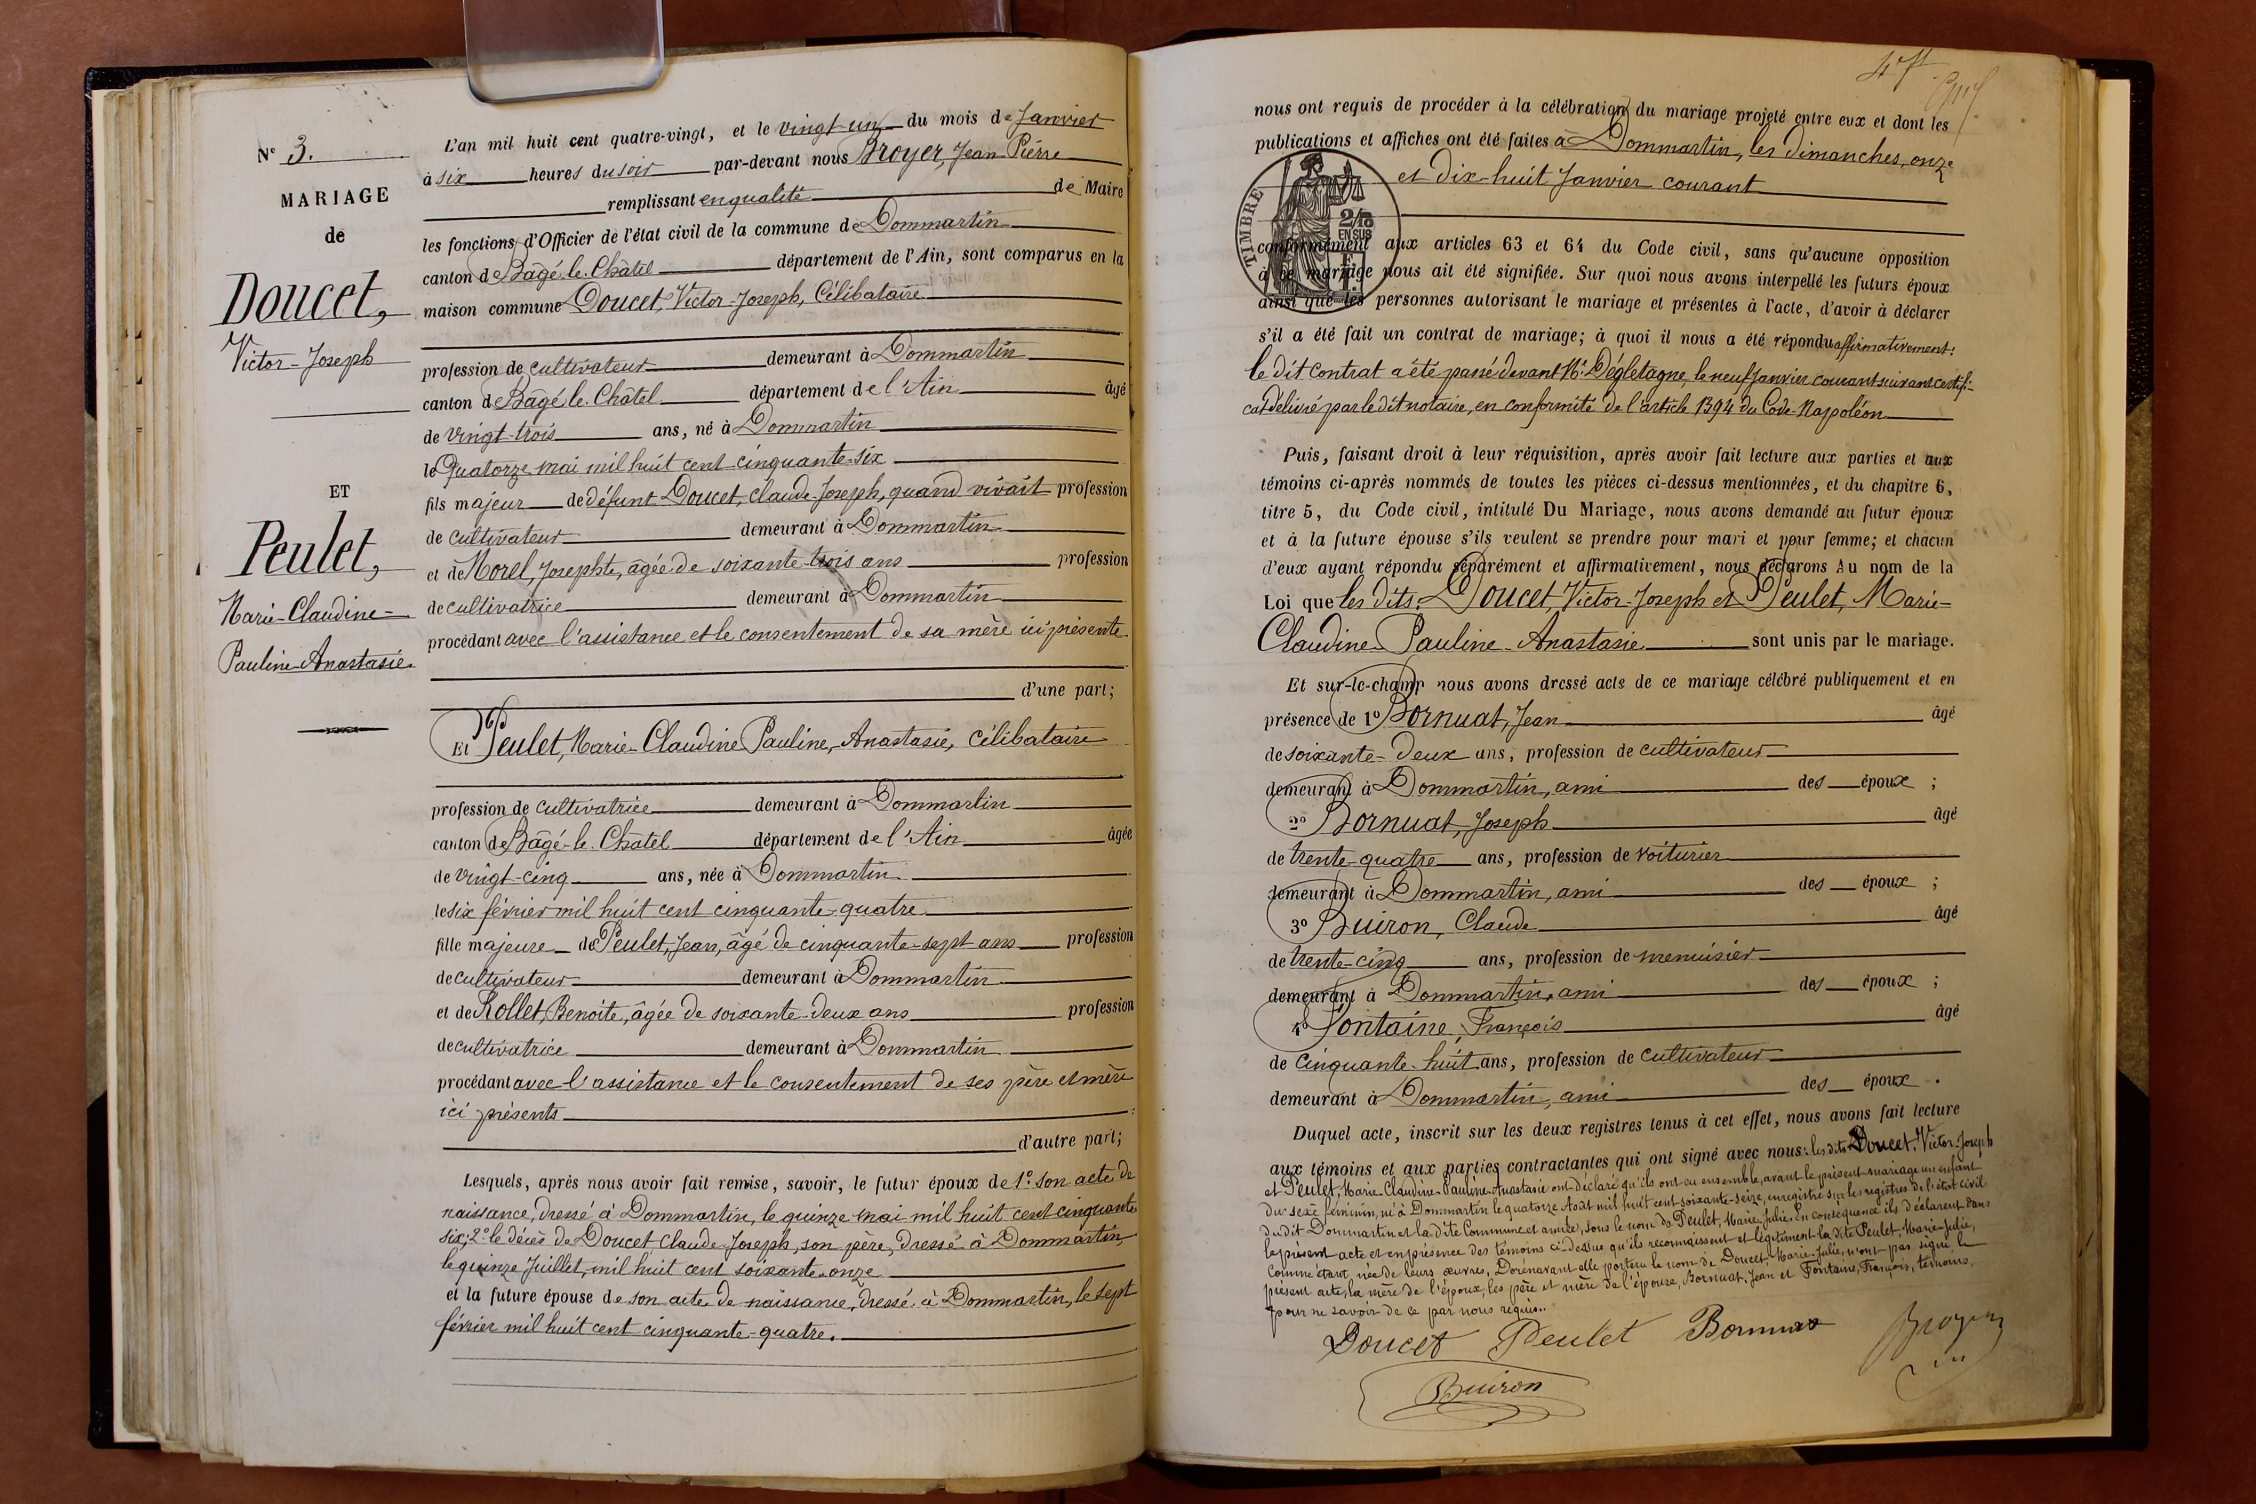 N° 3.
MARIAGE
de
Doucet,
Victor-Joseph
ET
Peulet,
Marie-Claudine-
Pauline-Anastasie.
L'an mil huit cent quatre-vingt, et le vingt-un du mois de Janvier
à six heures du soir par-devant nous Broyer, Jean-Pierre
remplissant en qualité de Maire
les fonctions d'Officier de l'état civil de la commune de Dommartin
canton de Bâgé-le-Châtel département de l'Ain, sont comparus en la
maison commune Doucet, Victor-Joseph, Célibataire
profession de cultivateur demeurant à Dommartin
canton de Bâgé-le-Châtel département de l'Ain âgé
de vingt-trois ans, né à Dommartin
le Quatorze mai mil huit cent cinquante-six
fils majeur de défunt Doucet, Claude-Joseph, quand vivait profession
de cultivateur demeurant à Dommartin
et de Morel, Josephte, âgée de soixante-trois ans profession
de cultivatrice demeurant à Dommartin
procédant avec l'assistance et le consentement de sa mère ici présente
d'une part;
Et Peulet, Marie-Claudine-Pauline-Anastasie, Célibataire
profession de cultivatrice demeurant à Dommartin
canton de Bâgé-le-Châtel département de l'Ain âgée
de vingt-cinq ans, née à Dommartin
le six février mil huit cent cinquante-quatre
fille majeure de Peulet, Jean, âgé de cinquante-sept ans profession
de cultivateur demeurant à Dommartin
et de Rollet, Benoite, âgée de soixante-deux ans profession
de cultivatrice demeurant à Dommartin
procédant avec l'assistance et le consentement de ses père et mère
ici présents
d'autre part;
Lesquels, après nous avoir fait remise, savoir, le futur époux de 1° son acte de
naissance, dressé à Dommartin, le quinze mai mil huit cent cinquante-
six; 2° le décès de Doucet Claude-Joseph, son père, dressé à Dommartin,
le quinze Juillet, mil huit cent soixante-onze
et la future épouse de son acte de naissance, dressé à Dommartin, le sept
février mil huit cent cinquante-quatre.
nous ont requis de procéder à la célébration du mariage projeté entre eux et dont les
publications et affiches ont été faites à Dommartin, les dimanches, onze
et dix-huit Janvier courant
TIMBRE
2/10
EN SUS
conformément aux articles 63 et 64 du Code civil, sans qu'aucune opposition
à ce mariage nous ait été signifiée. Sur quoi nous avons interpellé les futurs époux
ainsi que les personnes autorisant le mariage et présentes à l'acte, d'avoir à déclarer
s'il a été fait un contrat de mariage; à quoi il nous a été répondu affirmativement:
le dit contrat a été passé devant Me Dégletagne, le neuf Janvier courant suivant certifi-
cat délivré par le dit notaire, en conformité de l'article 1394 du Code-Napoléon
Puis, faisant droit à leur réquisition, après avoir fait lecture aux parties et aux
témoins ci-après nommés de toutes les pièces ci-dessus mentionnées, et du chapitre 6,
titre 5, du Code civil, intitulé Du Mariage, nous avons demandé au futur époux
et à la future épouse s'ils veulent se prendre pour mari et pour femme; et chacun
d'eux ayant répondu séparément et affirmativement, nous déclarons Au nom de la
Loi que les dits: Doucet, Victor-Joseph et Peulet, Marie-
Claudine-Pauline-Anastasie sont unis par le mariage.
Et sur-le-champ nous avons dressé acte de ce mariage célébré publiquement et en
présence de 1° Bornuat, Jean âgé
de soixante-deux ans, profession de cultivateur
demeurant à Dommartin, ami des époux ;
2° Bornuat, Joseph âgé
de trente-quatre ans, profession de voiturier
demeurant à Dommartin, ami des époux ;
3° Buiron, Claude âgé
de trente-cinq ans, profession de menuisier
demeurant à Dommartin, ami des époux ;
4° Fontaine, François âgé
de cinquante-huit ans, profession de cultivateur
demeurant à Dommartin, ami des époux .
Duquel acte, inscrit sur les deux registres tenus à cet effet, nous avons fait lecture
aux témoins et aux parties contractantes qui ont signé avec nous: les dits Doucet, Victor-Joseph
et Peulet, Marie-Claudine-Pauline-Anastasie ont déclaré qu'ils ont eu ensemble, avant le présent mariage un enfant
du sexe féminin, né à Dommartin le quatorze Août mil huit cent soixante-seize, enregistré sur les registres de l'état civil
du dit Dommartin et la dite Commune et année, sous le nom de Peulet, Marie-Julie. En conséquence ils déclarent dans
le présent acte et en présence des témoins ci-dessus qu'ils reconnaissent et légitiment la dite Peulet, Marie-Julie,
comme étant née de leurs œuvres, Dorénavant elle portera le nom de Doucet, Marie-Julie, n'ont pas signé le
présent acte, la mère de l'époux, les père et mère de l'épouse, Bornuat, Jean et Fontaine, François, témoins,
pour ne savoir de ce par nous requis.
Doucet Peulet Bornuat Broyer
Buiron